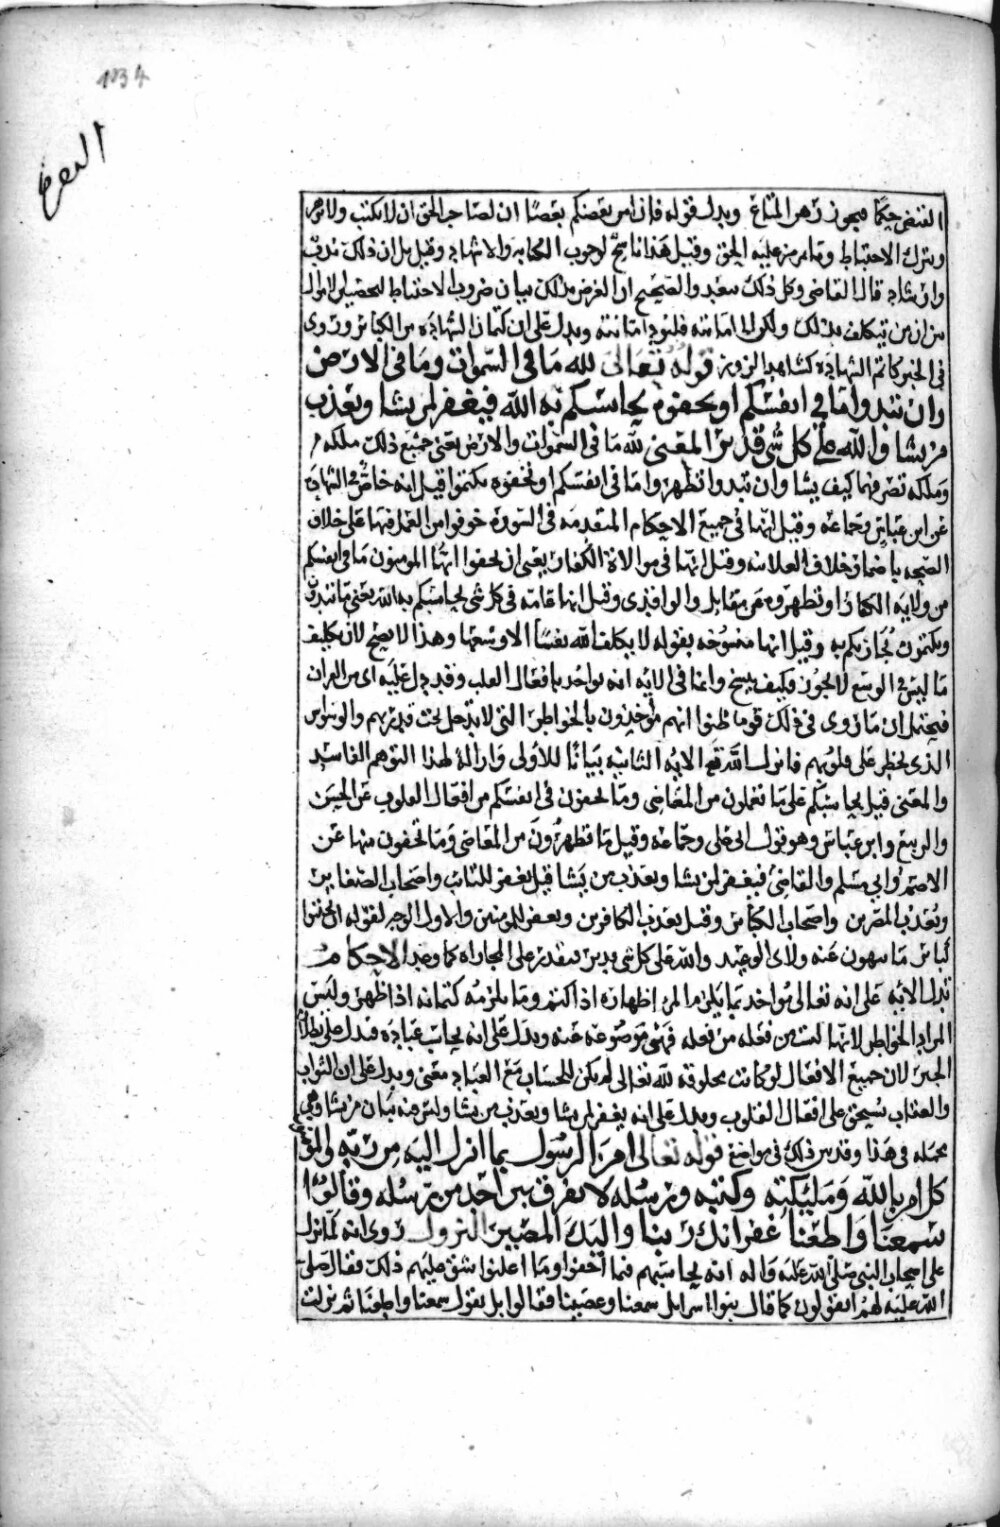 134
البقرة
القبض حكما فيجوز رهن المتاع ويدل قوله فان امن بعضكم بعضا ان لصاحب الحق ان لا يكتب ولا يرهن
ويترك الاحتياط وما من عليه الحق وقيل هذا ناسخ لوجوب الكتابة والاشهاد وقيل بل ان ذلك ندب
وارشاد قال القاضي وكل ذلك بعيد والصحيح ان الغرض بذلك بيان ضروب الاحتياط لتحصيل
من ان من تكلف بذلك ولكن امانته فليؤد امانته ويدل على ان كتمان الشهادة من الكبائر وروى
في الخبر كاتم الشهادة كشاهد الزور قوله تعالى لله ما في السموات وما في الارض
وان تبدوا ما في انفسكم او تخفوه يحاسبكم به الله فيغفر لمن يشا ويعذب
من يشا والله على كل شي قدير المعنى لله ما في السموات والارض يعني جميع ذلك ملكه
وملكه تصرفهما كيف يشا وان تبدوا تظهروا ما في انفسكم او تخفوه تكتموا قيل انه خاص في الشهادة
عن ابن عباس وجماعة وقيل انها في جميع الاحكام المتقدمة في السورة خوفوا من العمل فيها على خلاف
الصحة باضمار خلاف العلانية وقيل انها في موالاة الكفار يعني ان تخفوا ايها المؤمنون ما في انفسكم
من ولاية الكفار او تظهروه عن مقاتل والواقدي وقيل انها عامة في كل شي يحاسبكم به الله يعني ما تبدون
وتكتمون يجازيكم به وقيل انها منسوخه بقوله لا يكلف الله نفسا الا وسعها وهذا لا يصح لان تكليف
ما ليس في الوسع لا يجوز فكيف ينسخ وانما في الاية انه يواخذ بافعال القلب وقد دل عليه اي من القران
فيحتمل ان ما روى في ذلك قوما ظنوا انهم مؤاخذون بالخواطر التي لا يدخل تحت قدرتهم والوسواس
الذي يخطر على قلوبهم فانزل الله تع الاية الثانية بيانا للاولى وازالة لهذا التوهم الفاسد
والمعنى قيل يحاسبكم على ما تعملون من المعاصي وما تخفون في انفسكم من افعال القلوب عن الحسن
والربيع وابن عباس وهو قول ابي علي وجماعة وقيل ما تظهرون من المعاصي وما تخفون منها عن
الاصم وابي مسلم والقاضي فيغفر لمن يشا ويعذب من يشا قيل يغفر للتائب واصحاب الصغاير
ويعذب المصرين واصحاب الكبائر وقيل يعذب الكافرين ويغفر للمؤمنين والاول الوجه لقوله ان تجتنبوا
كبائر ما تنهون عنه ولاي الوعيد والله على كل شي قدير فيقدر على المجازاة كما وعد الاحكام
تدل الاية على انه تعالى يواخذ بما يلزم المرء اظهاره اذا كتم وما يلزمه كتمانه اذا اظهر وليس
المراد الخواطر لانها ليست من فعله من فعله فهي موضوعة عنه ويدل على انه يحاسب عباده فتدل على بطلان
الجبر لان جميع الافعال لو كانت مخلوقة لله تعالى لم يكن للحساب مع العباد معنى ويدل على ان الثواب
والعقاب يستحق على افعال القلوب ويدل على انه يغفر لمن يشا ويعذب من يشا وليس فيه بيان من يشا وهي
مجمله في هذا وقد بين ذلك في مواضع قوله تعالى امن الرسول بما انزل اليه من ربه والمؤمنون
كل امن بالله وملئكته وكتبه ورسله لا نفرق بين احد من رسله وقالوا
سمعنا واطعنا غفرانك ربنا واليك المصير النزول روى انه لما نزل
على اصحاب النبي صلى الله عليه واله انه يحاسبهم فيما اخفوا وما اعلنوا شق عليهم ذلك فقال صلى
الله عليه لهم اتقولون كما قال بنوا اسرايل سمعنا وعصينا فقالوا بل نقول سمعنا واطعنا ثم نزلت